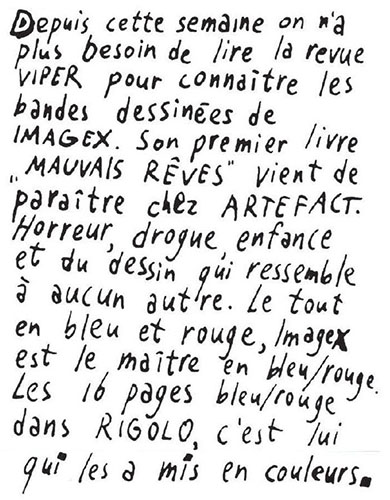 Depuis cette semaine on n'a
plus besoin de lire la revue
VIPER pour connaître les
bandes dessinées de
IMAGEX. Son premier livre
„MAUVAIS RÊVES" vient de
paraître chez ARTEFACT.
Horreur, drogue, enfance
et du dessin qui ressemble
à aucun autre. Le tout
en bleu et rouge, Imagex
est le maître en bleu/rouge.
Les 16 pages bleu/rouge
dans RIGOLO, c'est lui
qui les a mis en couleurs.